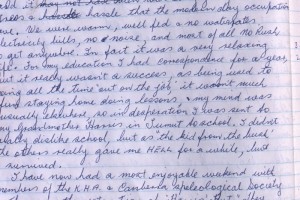 had
trees & handle that the modern day occupation
ave. We were warm, well fed & no water rates,
electricity bills, no noise, and most of all No Rush
to get anywhere. In fact it was a very relaxing
For my education I had correspondence for a year,
but it really wasn't a success, as being used to
being all the time out on the job, it wasn't much
fun staying home doing lessons, my mind was
usually elsewhere, so in desperation I was sent to
my Grandmother Harris in Tumut to school. I did not
really dislike school, but as 'the kid from the bush'
the others really gave me HELL for a while, but
survived.
I have now had a most enjoyable weekend with
members of the K.H.A. & Canberra Speleological Society
they